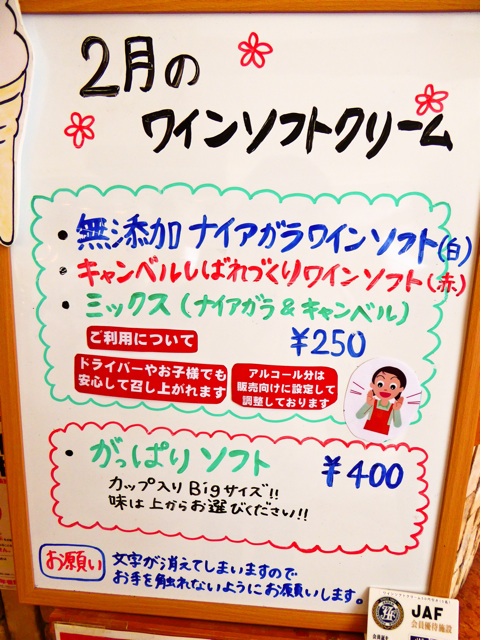 2月の
ワインソフトクリーム
・無添加ナイアガラワインソフト(白)
・キャンベルしばれづくりワインソフト(赤)
・ミックス(ナイアガラ&キャンベル)
ご利用について
¥250
ドライバーやお子様でも
安心して召し上がれます
アルコール分は
販売向けに設定して
調整しております
・がっぱりソフト
¥400
カップ入りBigサイズ!!
味は上からお選びください!!
お願い
文字が消えてしまいますので
お手を触れないようにお願いします。
JAF
会員優待施設